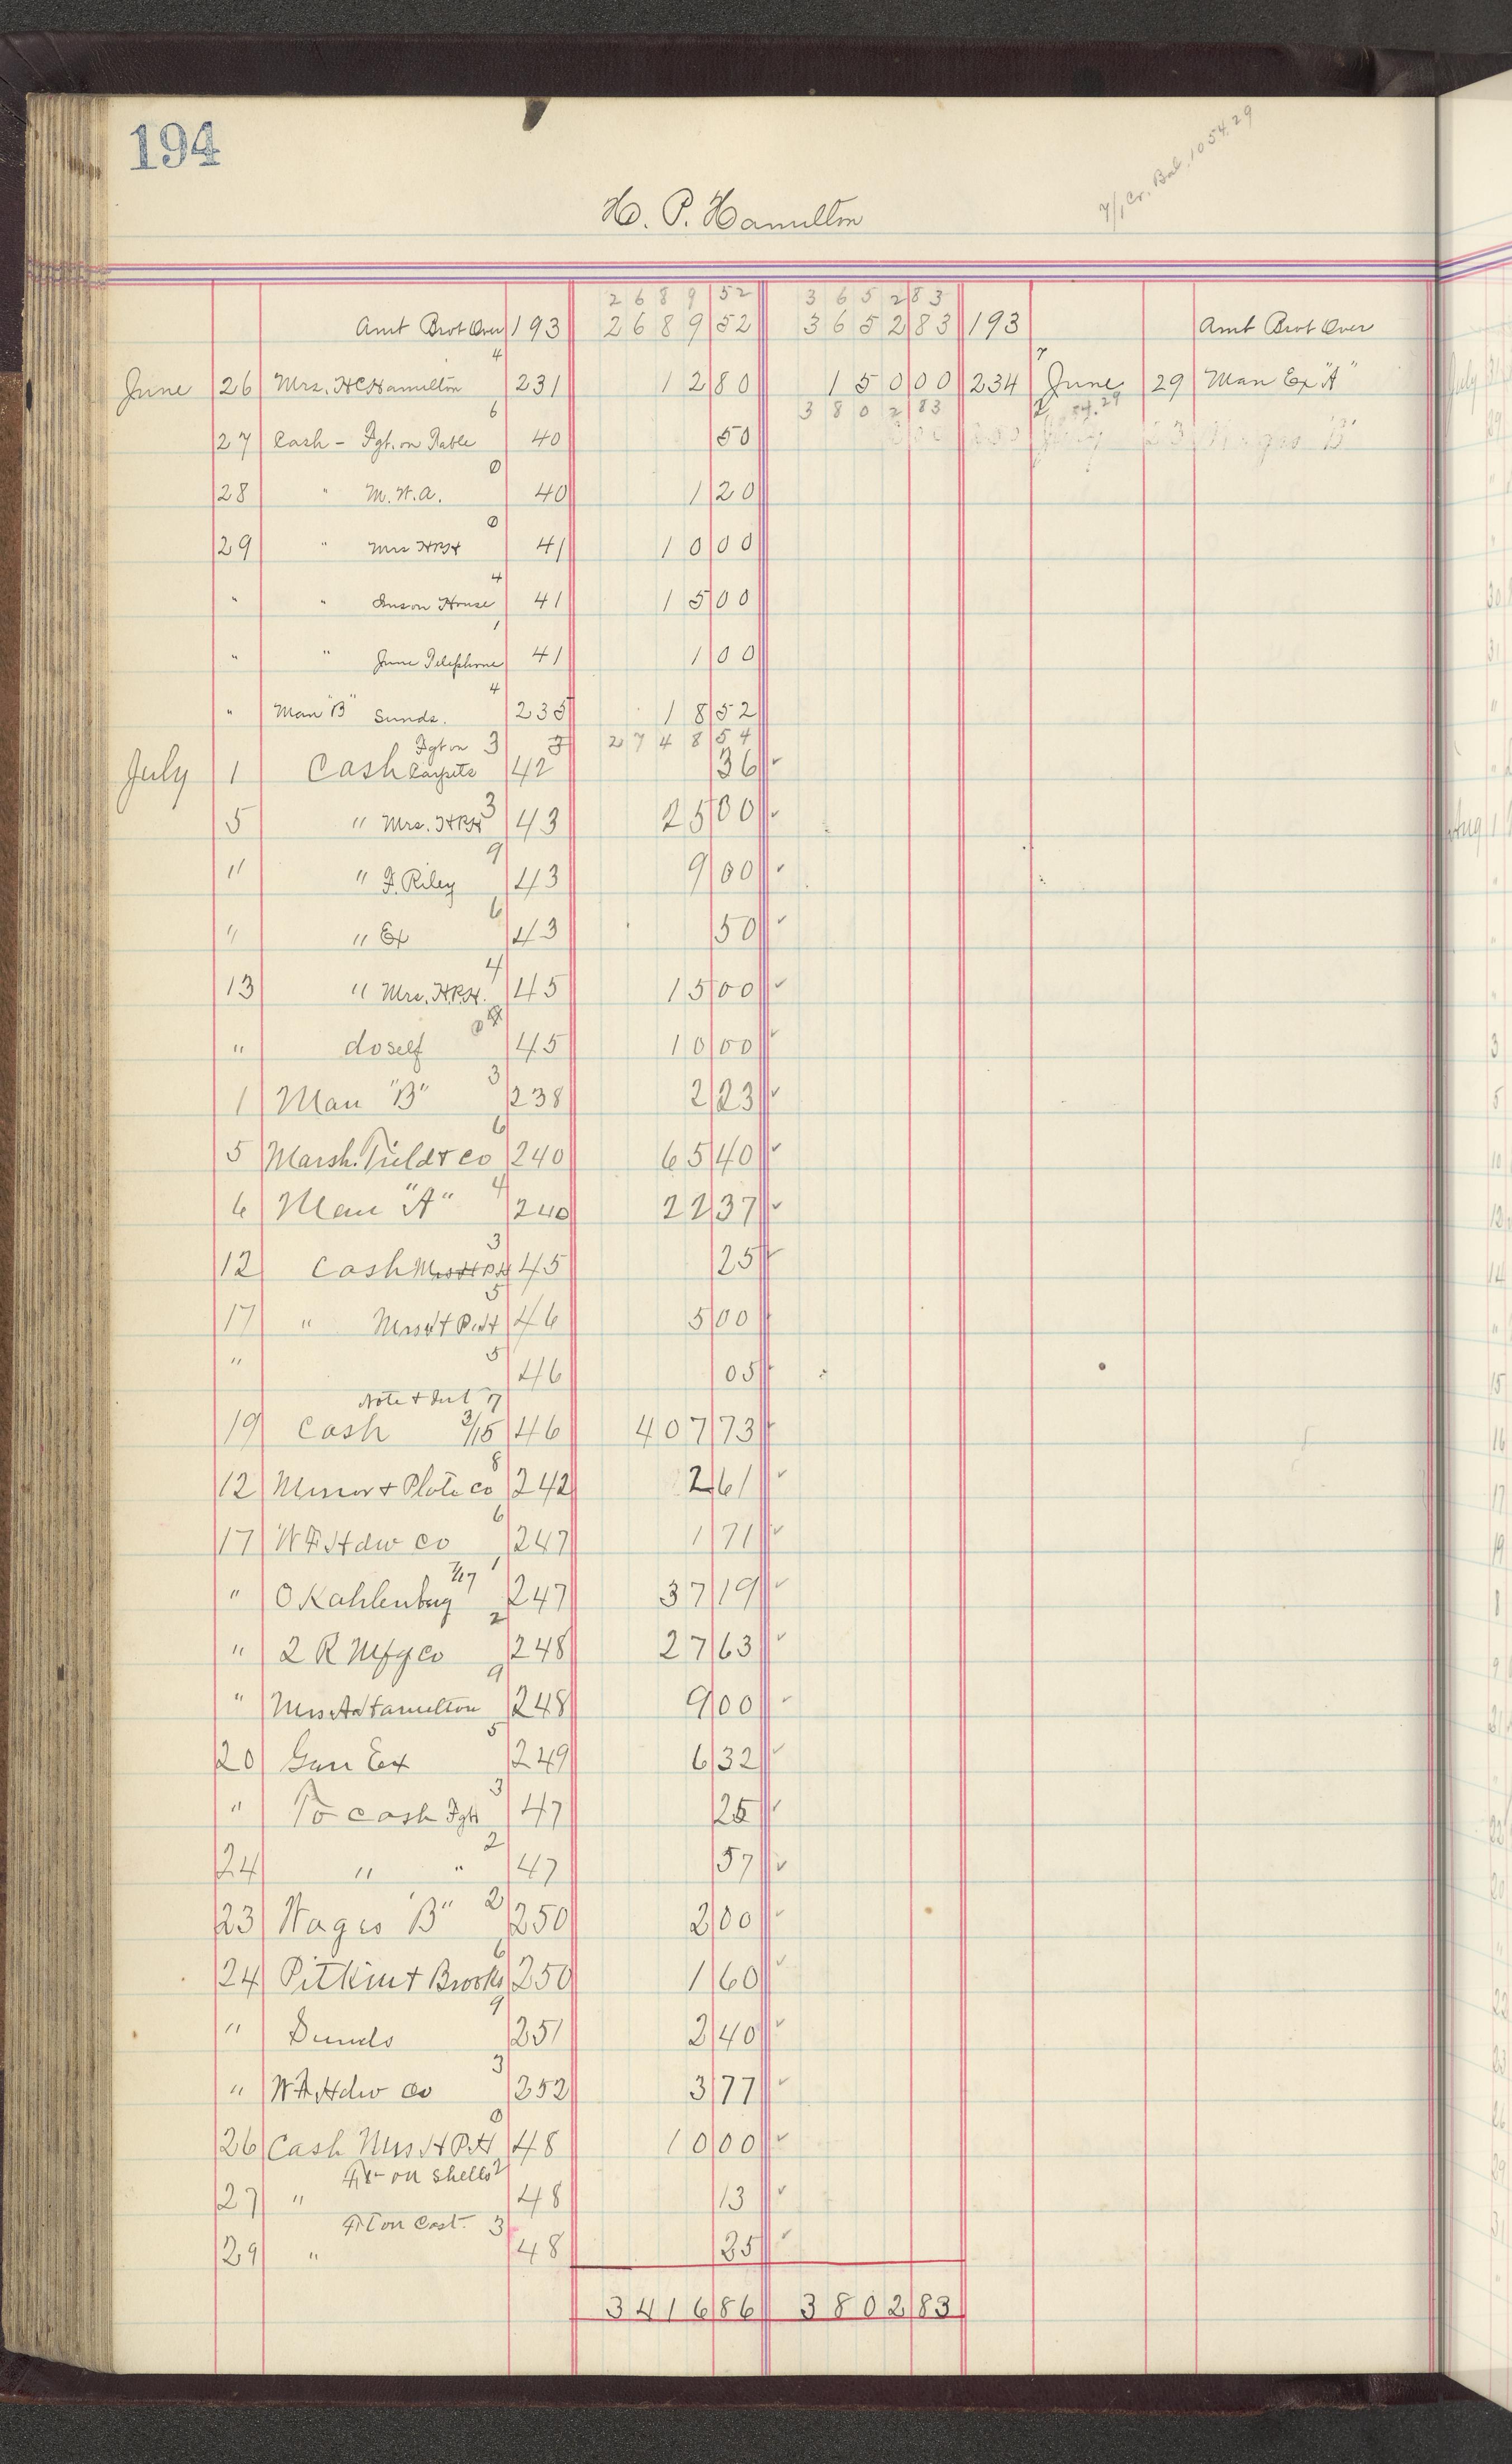 194
7/1 Cr. Bal. 1054.29
H. P. Hamilton
2689 52 3652 83
Amt Brot Over 193 2689 52 3652 83 193 Amt Brot Over
4 7
June 26 Mrs. HCHamilton 231 12 80 150 00 234 June 29 Man Ex "A"
6 3802 83
27 Cash - Fgt. on Table 40 50
0
28 " M.W.A. 40 1 20
0
29 " Mrs HPH 41 10 00
4
" " House 41 15 00
1
" " June Telephone 41 1 00
4
" Man "B" Sunds. 235 18 52
Fgt on 3 2748 54
July 1 Cash Carpets 42 36 ✓
3
5 " Mrs. HPH 43 25 00 ✓
9
" " F. Riley 43 9 00 ✓
6
" " Ex 43 50 ✓
4
13 " Mrs. H.P.H. 45 15 00 ✓
0
" do self 45 10 00 ✓
3
1 Man "B" 238 2 23 ✓
6
5 Marsh. Field & Co 240 65 40 ✓
4
6 Man "A" 240 22 37 ✓
3
12 Cash Mrs H P H 45 25 ✓
5
17 " Mrs H P H 46 5 00 ✓
5
" 46 05 ✓
Note & Int 7
19 Cash 3/15 46 407 73 ✓
8
12 Mirror & Plate Co 242 2 61 ✓
6
17 W F Hdw Co 247 1 71 ✓
7/17 1
" O Kahlenberg 247 37 19 ✓
2
" 2 R Mfg Co 248 27 63 ✓
9
" Mrs A Hamilton 248 9 00 ✓
5
20 Gen Ex 249 6 32 ✓
3
" To Cash Fgt 47 25 ✓
2
24 " " 47 57 ✓
2
23 Wages "B" 250 2 00 ✓
6
24 Pitkin & Brooks 250 1 60 ✓
9
" Sunds 251 2 40 ✓
3
" W A Hdw Co 252 3 77 ✓
0
26 Cash Mrs H P H 48 10 00 ✓
Frt on Shells 2
27 " 48 13 ✓
Frt on Cast. 3
29 " 48 25 ✓
3416 86 3802 83